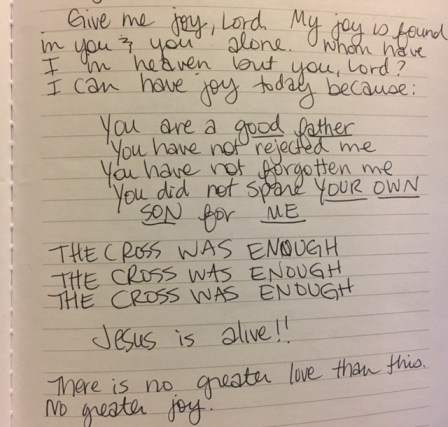 Give me joy, Lord. My joy is found
in you & you alone. Whom have
I in heaven but you, Lord?
I can have joy today because:
You are a good father
You have not rejected me
You have not forgotten me
You did not spare YOUR OWN
SON for ME
THE CROSS WAS ENOUGH
THE CROSS WAS ENOUGH
THE CROSS WAS ENOUGH
Jesus is alive!!
There is no greater love than this.
No greater joy.